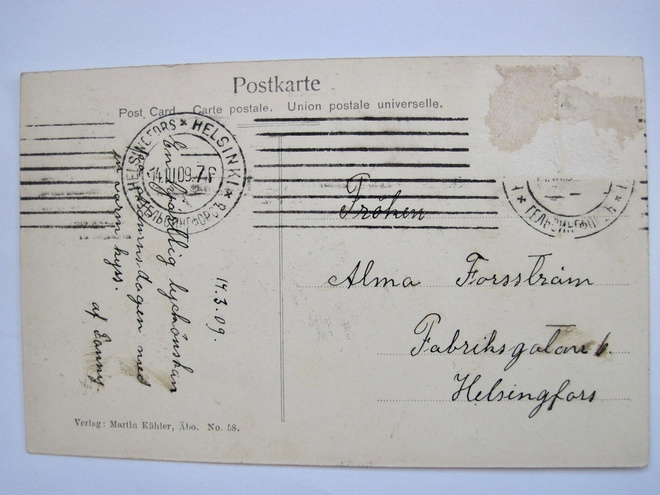 Postkarte
Post Card Carte postale. Union postale universelle.
HELSINGFORS * HELSINKI *
14 III 09. 7
ГЕЛЬСИНГФОРСЪ
ГЕЛЬСИНГФОРСЪ
Fröken
Alma Forsström
Fabriksgatan 6.
Helsingfors
14.3.09.
En hjärtlig lyckönskan
på namnsdagen med
en varm kyss.
af Fanny.
Verlag: Martin Kähler, Åbo. No. 58.